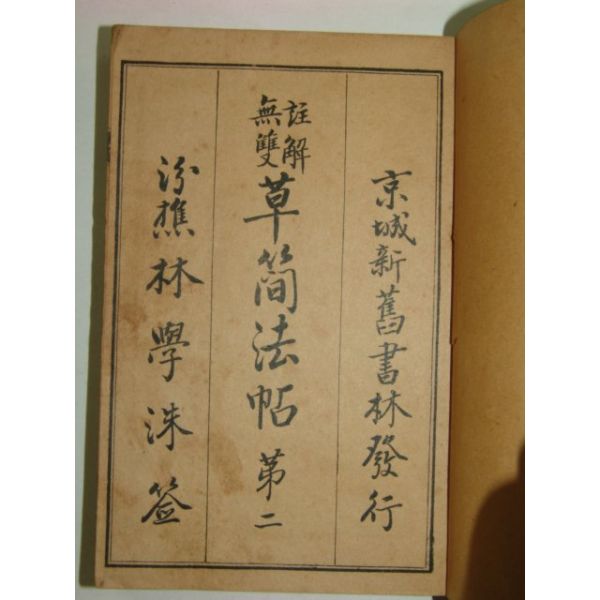 京城新舊書林發行
註解
無雙
草簡法帖 第二
汾樵林學洙簽